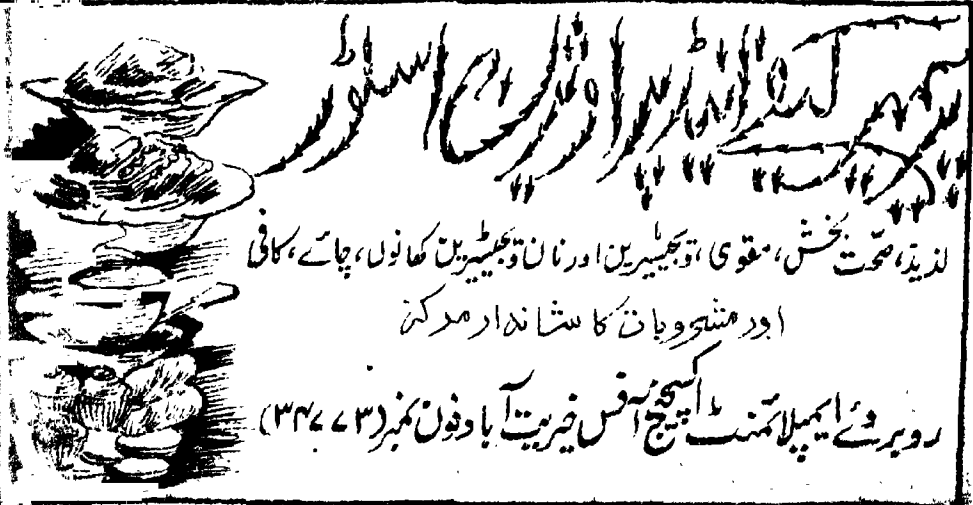 لذیذ، صحت بخش، مقوی، ویجیٹیرین اور نان ویجیٹیرین کھانوں، چائے، کافی
اور مشروبات کا شاندار مرکز
روبروئے ایمپلائمنٹ ایکسچینج آفس خیریت آباد فون نمبر (۳۴۷۷۳)